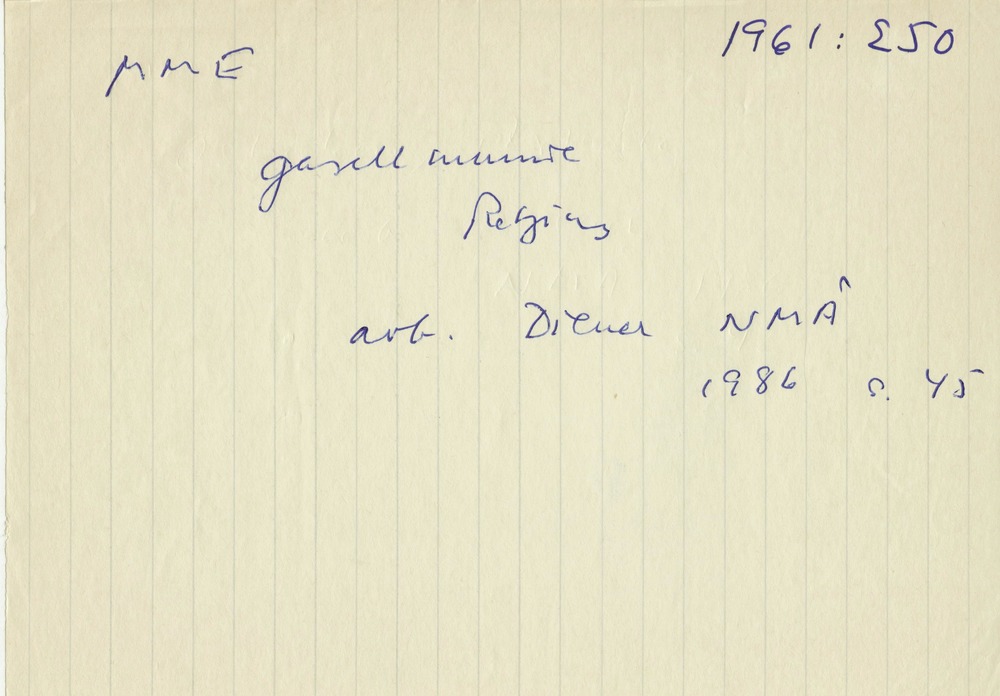 MME 1961:250
gasell mumie
Retzius
avb. Diener NMÅ
1986 s. 45